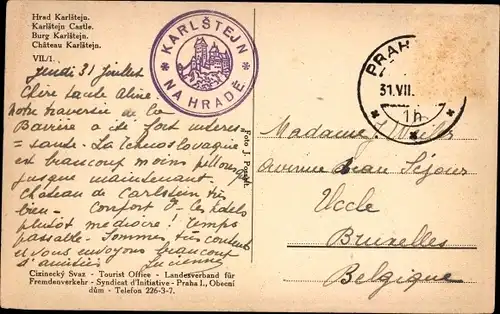 Hrad Karlštejn.
Karlštejn Castle.
Burg Karlštejn.
Château Karlštejn.
VII/1.
Jeudi 31 Juillet
Chère tante Aline
Notre traversée de la
Bavière a été fort intéres
= sante. La Tchécoslovaquie
est beaucoup moins
jusque maintenant
Château de Carlstein très
bien - Confort des hôtels
plutôt médiocre! Temps
passable. Sommes très contents
et vous envoyons beaucoup
d'amitiés Lucienne
Cizinecký Svaz - Tourist Office - Landesverband für
Fremdenverkehr - Syndicat d'Initiative - Praha I., Obecní
dům - Telefon 226-3-7.
* KARLŠTEJN *
NA HRADĚ
Foto J.
PRAHA
31.VII.
1h
Madame
Avenue Beau Séjour
Uccle
Bruxelles
Belgique